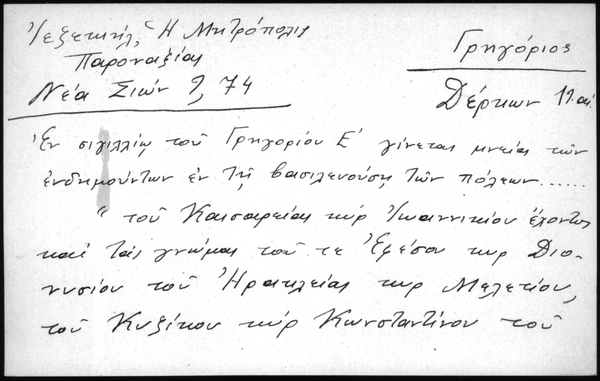 Ἰεζεκιήλ, Ἡ Μητρόπολις
Παροναξίας
Νέα Σιών 9, 74
Γρηγόριος
Δέρκων 11. αἰ.
Ἐν σιγιλλίῳ τοῦ Γρηγορίου Ε' γίνεται μνεία τῶν
ἐνδημούντων ἐν τῇ βασιλευούσῃ τῶν πόλεων......
"τοῦ Καισαρείας κύρ Ἰωαννικίου ἔχοντος
καί τάς γνώμας τοῦ τε Ἐφέσου κυρ Διο-
νυσίου τοῦ Ἡρακλείας κυρ Μελετίου,
τοῦ Κυζίκου κύρ Κωνσταντίνου τοῦ